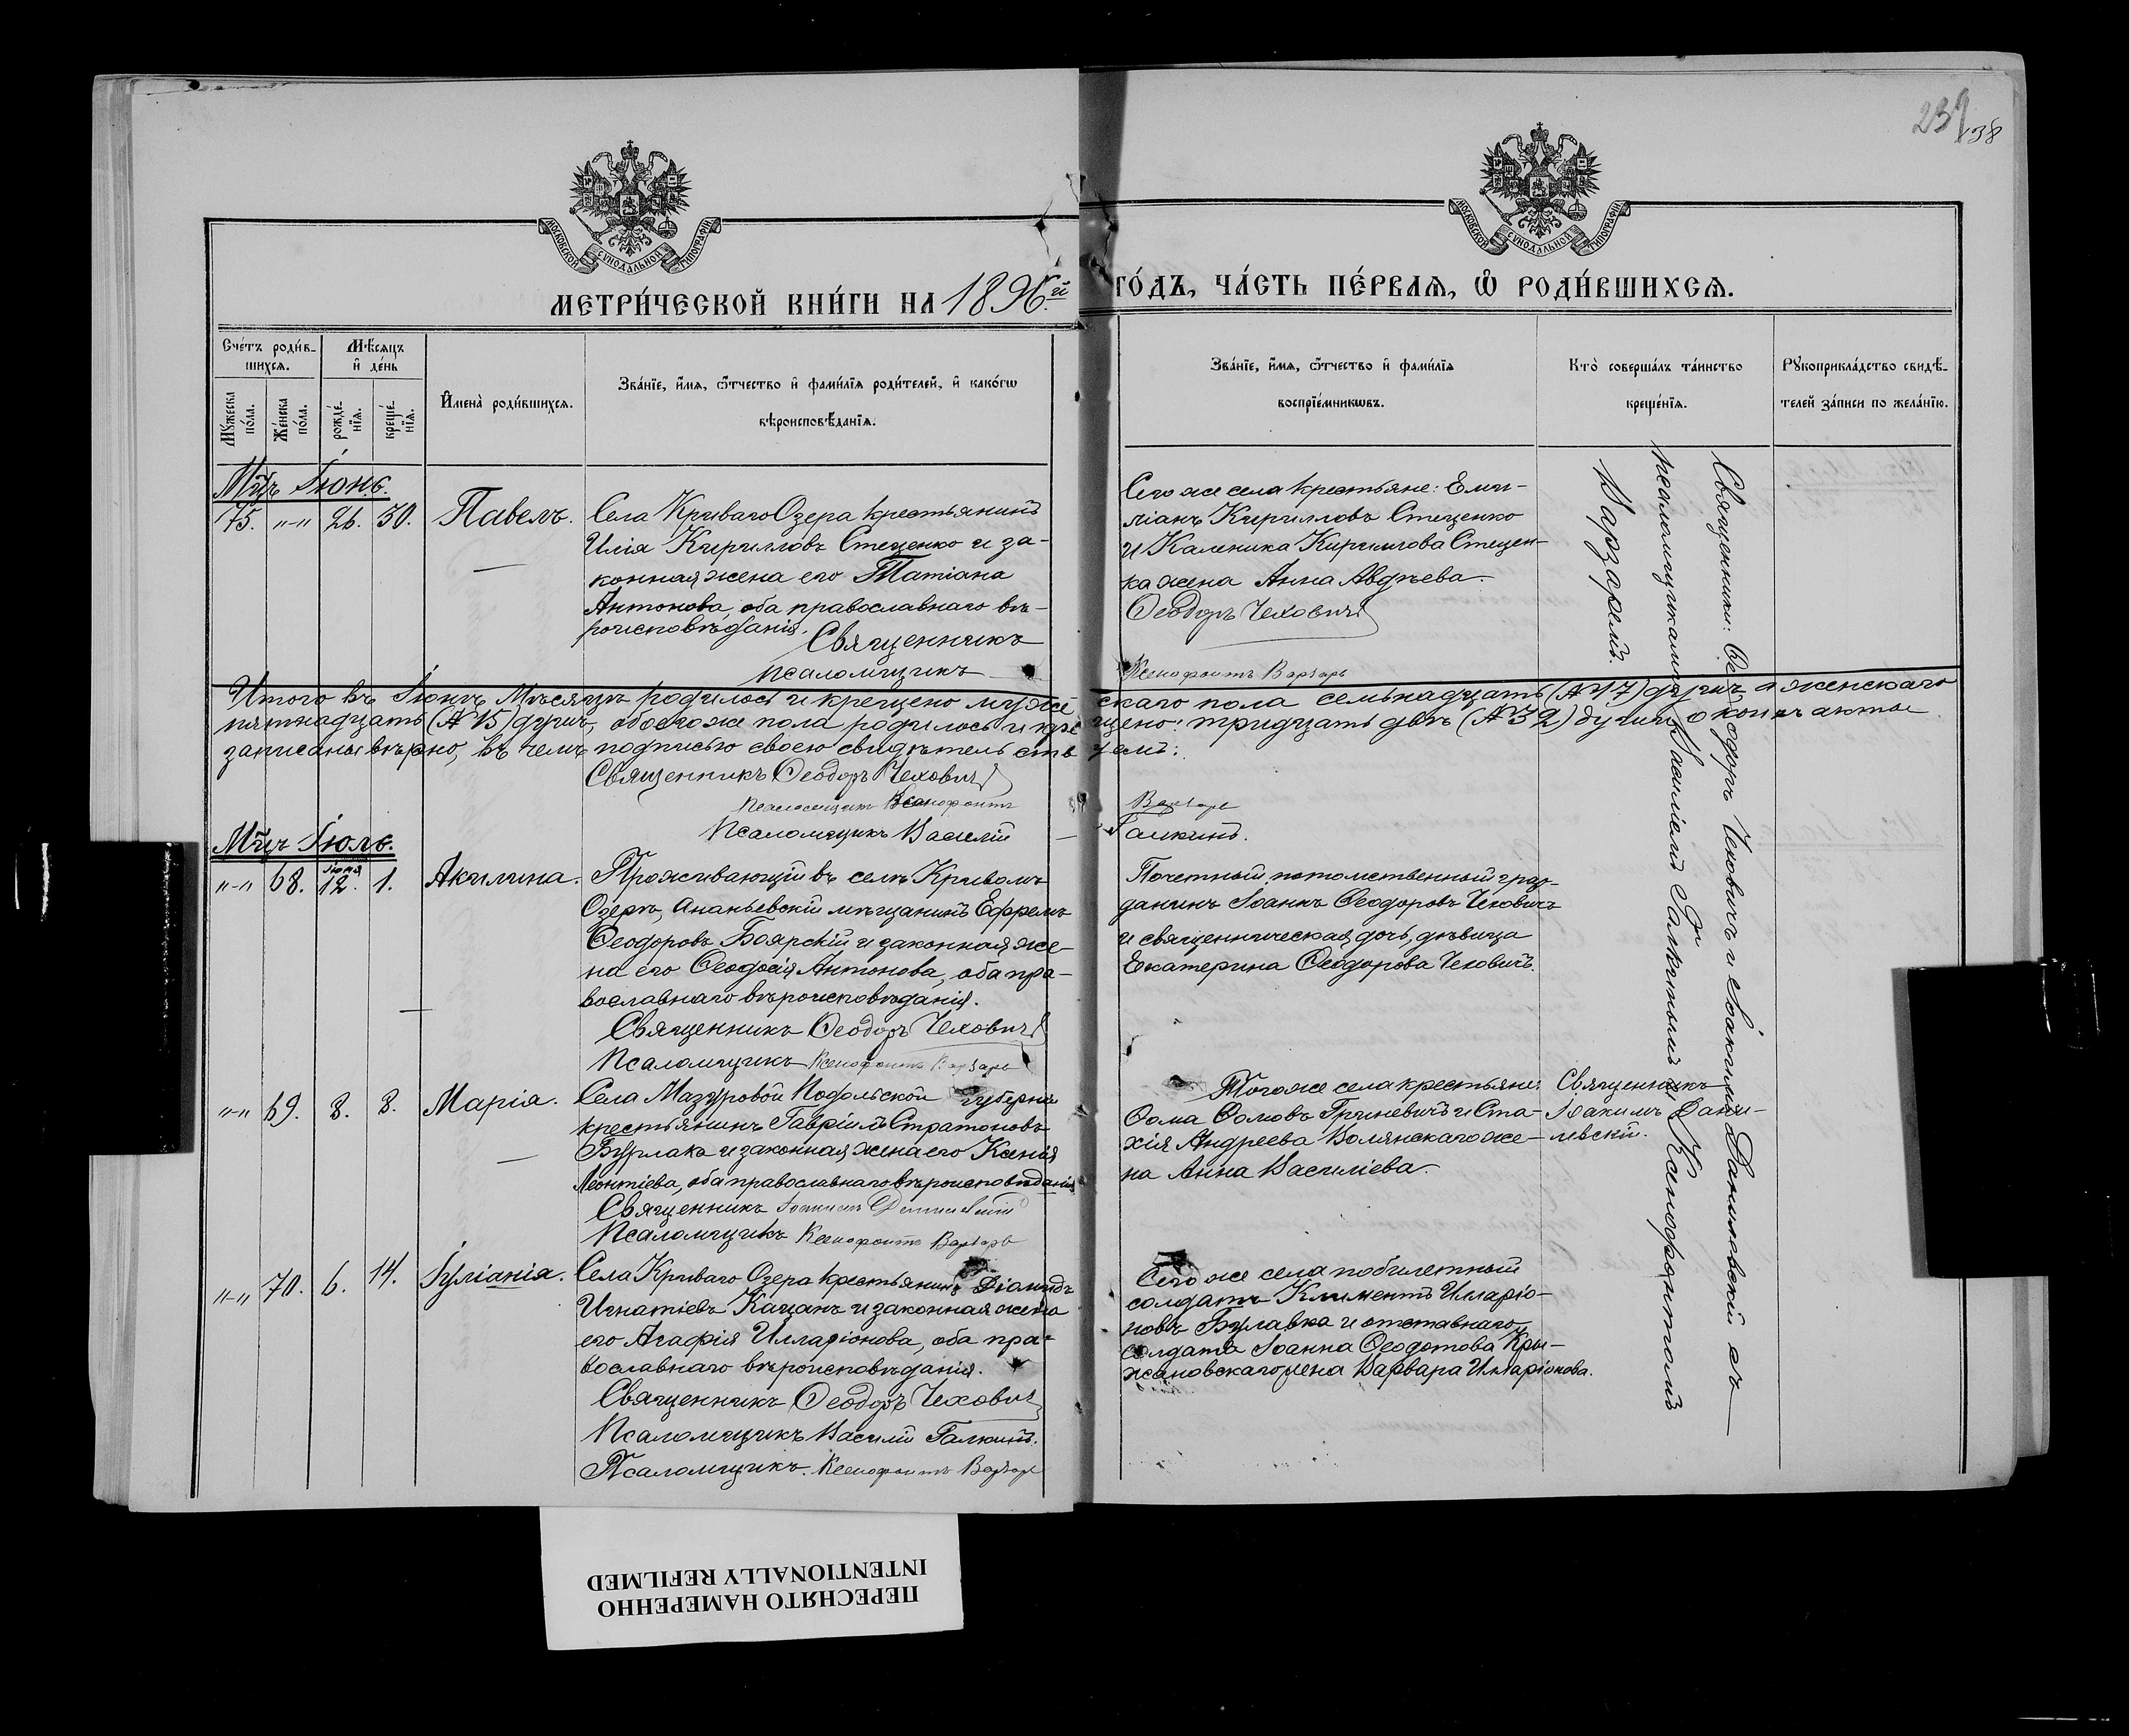 239
138
МОСКОВСКОЙ СѴНОДАЛЬНОЙ ТИПОГРАФІИ
МОСКОВСКОЙ СѴНОДАЛЬНОЙ ТИПОГРАФІИ
МЕТРИ́ЧЕСКОЙ КНИ́ГИ НА 1896.й ГО́ДЪ, ЧА́СТЬ ПЕ́РВАѦ, Ѡ҆ РОДИ́ВШИХСѦ.
Счетъ роди́в-
шихсѧ.
Мꙋ́жеска по́ла.
Же́нска по́ла.
Мѣ́сѧцъ
и҆ де́нь
рожде́-нїѧ.
креще́-нїѧ.
И҆мена̀ роди́вшихсѧ.
Зва́нїе, и҆́мѧ, ѻ҆́тчество и҆ фами́лїѧ роди́телей, и҆ како́гѡ
вѣроисповѣ́данїѧ.
Зва́нїе, и҆́мѧ, ѻ҆́тчество и҆ фами́лїѧ
воспрїе́мникѡвъ.
Кто̀ соверша́лъ та́инство
креще́нїѧ.
Рꙋкоприкла́дство свидѣ́-
телей за́писи по жела́нїю.
Мцъ Іюнь.
75. "-" 26. 30. Павелъ.
Села Криваго Озера крестьянинъ
Илія Кирилловъ Стеценко и за-
конная жена его Татіана
Антонова, оба православнаго вѣ-
роисповѣданія.
Священникъ
Псаломщикъ
Сего же села крестьяне: Еми-
ліанъ Кирилловъ Стеценко
и Каленика Кириллова Стецен-
ка жена Анна Авдѣева.
Ѳеодоръ Чеховичъ
Ксенофонтъ Варзарь
Итого въ Іюнѣ Мѣсяцѣ родилось и крещено мужескаго пола семьнадцать (№ 17) душъ, а женскаго
пятнадцать (№ 15) душъ, обоего же пола родилось и крещено: тридцать двѣ (№ 32) души, о коихъ акты
записаны вѣрно, въ чемъ подписью своею свидѣтельствуемъ:
Священникъ Ѳеодоръ Чеховичъ
Псаломщикъ Ксенофонтъ Варзарь
Псаломщикъ Василій Галкинъ.
Мцъ Іюль.
"-" 68. Іюня 12. 1. Акилина.
Проживающій въ селѣ Кривомъ
Озерѣ, Ананьевскій мѣщанинъ Ефремъ
Ѳеодоровъ Боярскій и законная же-
на его Ѳеодосія Антонова, оба пра-
вославнаго вѣроисповѣданія.
Священникъ Ѳеодоръ Чеховичъ
Псаломщикъ Ксенофонтъ Варзарь
Почетный потомственный граж-
данинъ Іоаннъ Ѳеодоровъ Чеховичъ
и священническая дочь, дѣвица
Екатерина Ѳеодорова Чеховичъ.
"-" 69. 8. 8. Марія.
Села Мазуровой Подольской губерніи
крестьянинъ Гавріилъ Стратоновъ
Бурлака и законная жена его Ксенія
Леонтіева, оба православнаго вѣроисповѣданія
Священникъ Іоакимъ Данилевскій
Псаломщикъ Ксенофонтъ Варзарь
Того же села крестьяне
Ѳома Ѳомовъ Гриневичъ и Ста-
хія Андреева Волянскаго же-
на Анна Василіева.
Священникъ
Іоакимъ Дани-
левскій.
"-" 70. 6. 14. Іуліанія.
Села Криваго Озера крестьянинъ Діомидъ
Игнатіевъ Кацанъ и законная жена
его Агафія Илларіонова, оба пра-
вославнаго вѣроисповѣданія.
Священникъ Ѳеодоръ Чеховичъ
Псаломщикъ Василій Галкинъ.
Псаломщикъ. Ксенофонтъ Варзарь
Сего же села побилетный
солдатъ Климентъ Илларіо-
новъ Булавка и отставнаго
солдата Іоанна Ѳеодотова Кры-
жановскаго жена Варвара Илларіонова.
Священники: Ѳеодоръ Чеховичъ и Іоакимъ Данилевскій съ
псаломщиками: Василіемъ Галкинымъ и Ксенофонтомъ
Варзаремъ.
ПЕРЕСНЯТО НАМЕРЕННО
INTENTIONALLY REFILMED